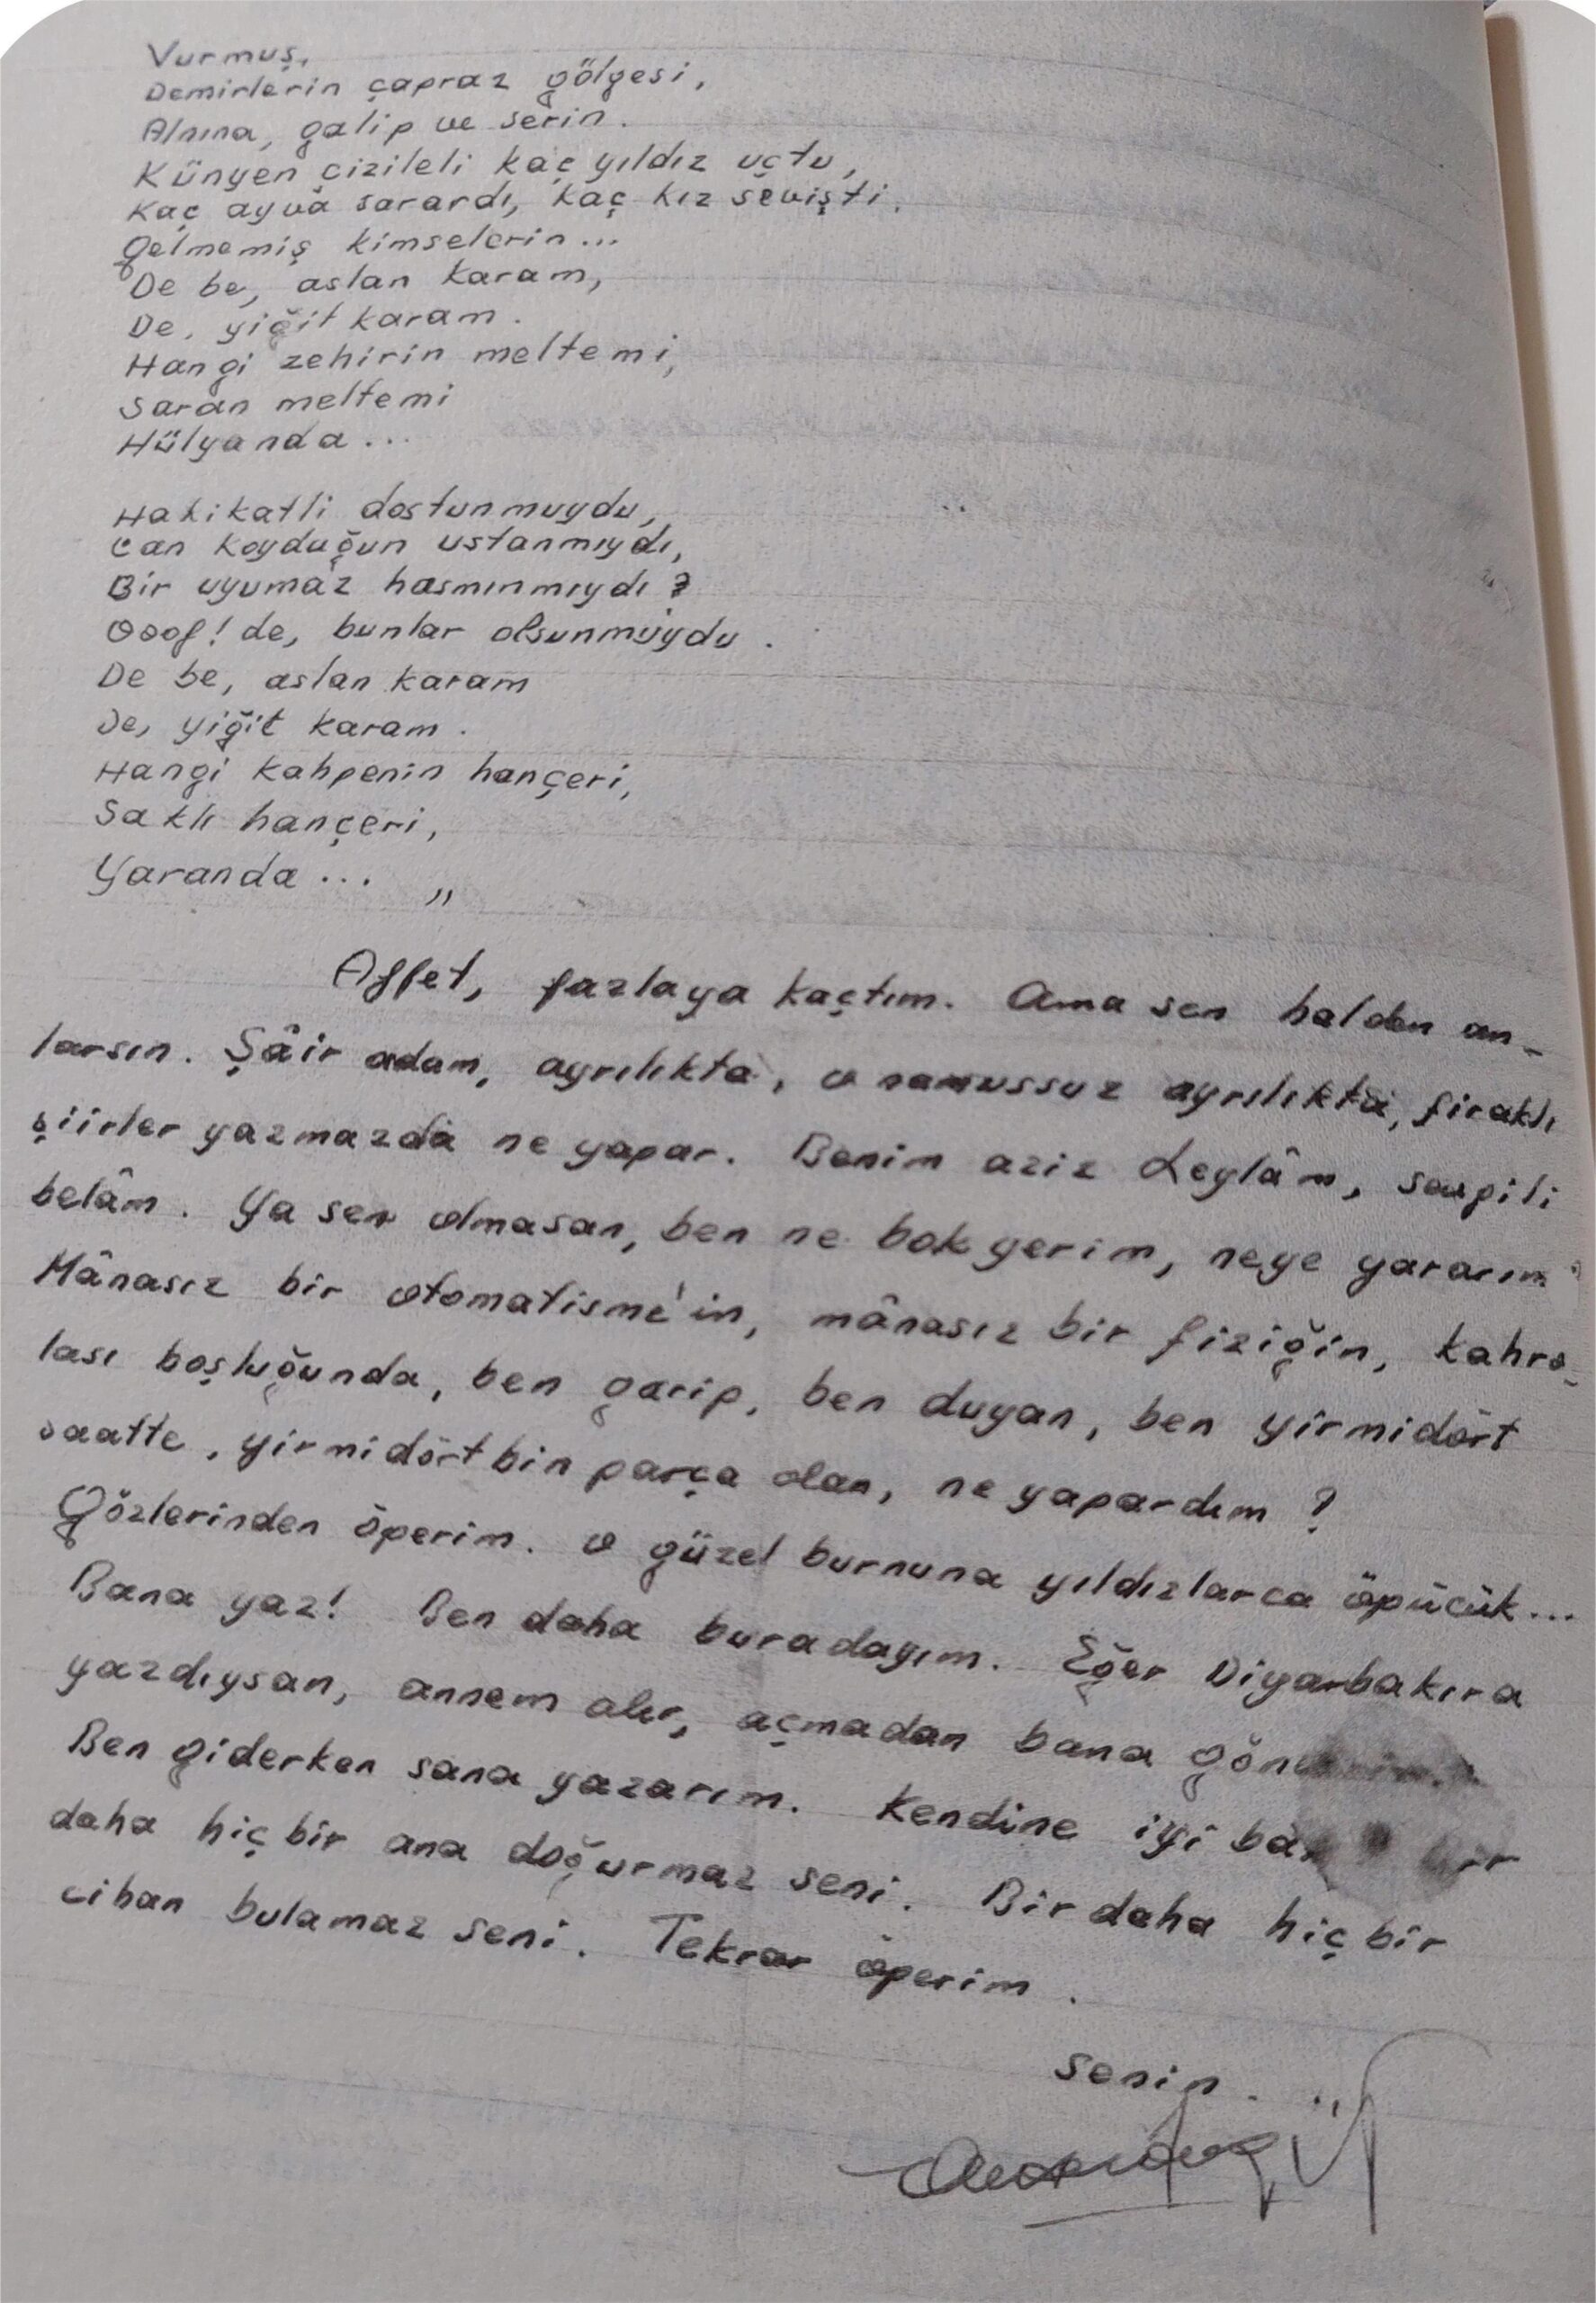 Vurmuş,
Demirlerin çapraz gölgesi,
Alnına, galip ve serin.
Künyen çizileli kaç yıldız uçtu,
Kaç ayva sarardı, kaç kız sevişti.
Gelmemiş kimselerin...
De be, aslan karam,
De, yiğit karam.
Hangi zehirin meltemi,
Saran meltemi
Hülyanda...
Hakikatli dostunmuydu,
Can koyduğun ustanmıydı,
Bir uyumaz hasmınmıydı?
Ooof! de, bunlar olsunmuydu.
De be, aslan karam
De, yiğit karam.
Hangi kahpenin hançeri,
Saklı hançeri,
Yaranda... "
Affet, fazlaya kaçtım. Ama sen halden an-
larsın. Şâir adam, ayrılıkta, o namussuz ayrılıkta, firaklı
şiirler yazmazda ne yapar. Benim aziz Leylâm, sevgili
belâm. Ya sen olmasan, ben ne bok yerim, neye yararım?
Mânasız bir otomatisme'in, mânasız bir fiziğin, kahro-
lası boşluğunda, ben garip, ben duyan, ben yirmidört
saatte, yirmidört bin parça olan, ne yapardım?
Gözlerinden öperim. O güzel burnuna yıldızlarca öpücük...
Bana yaz! Ben daha buradayım. Eğer Diyarbakıra
yazdıysan, annem alır, açmadan bana
Ben giderken sana yazarım. Kendine iyi bak
daha hiç bir ana doğurmaz seni. Bir daha hiç bir
cihan bulamaz seni. Tekrar öperim.
Senin.